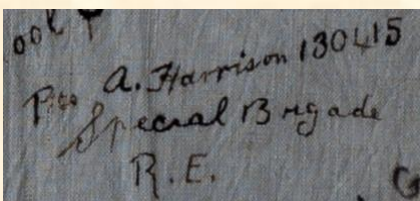 Pte A. Harrison 130415
Special Brigade
R.E.